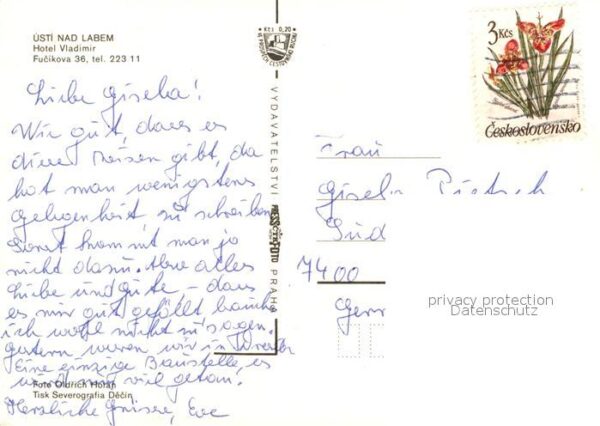 ÚSTÍ NAD LABEM
Hotel Vladimir
Fučíkova 36, tel. 223 11
Kčs 0,20
VYDAVATELSTVÍ PRESSFOTO PRAHA
3 Kčs
Československo
Liebe Gisela!
Wie gut, dass es
diese Reisen gibt, da
hat man wenigstens
Gelegenheit zu schreiben
Sonst kommt man ja
nicht dazu. Aber alles
Liebe und Gute - dass
es mir gut gefällt brauche
ich wohl nicht zu sagen.
Gestern waren wir in
Eine einzige Baustelle, es
wird viel getan.
Herzliche Grüsse, Eve
Foto Oldřich Horák
Tisk Severografia Děčín
Frau
Gisela
7400
privacy protection
Datenschutz